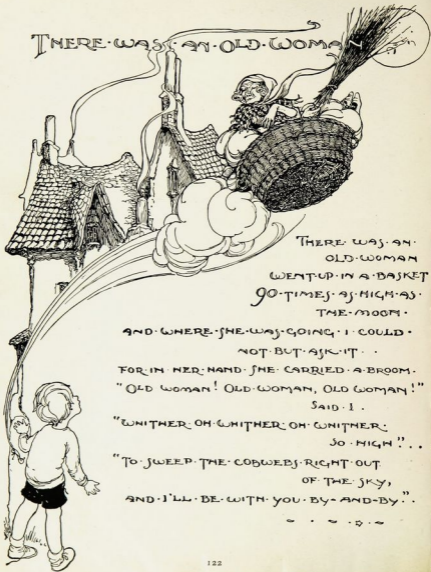 THERE·WAS·AN·OLD·WOMAN
THERE·WAS·AN·
OLD·WOMAN
WENT·UP·IN·A·BASKET
90·TIMES·AS·HIGH·AS·
THE·MOON·
AND·WHERE·SHE·WAS·GOING·I·COULD·
NOT·BUT·ASK·IT··
FOR·IN·HER·HAND·SHE·CARRIED·A·BROOM·
"OLD WOMAN! OLD·WOMAN, OLD WOMAN!"
SAID·I·
"WHITHER·OH·WHITHER·OH·WHITHER·
SO HIGH"?··
"TO·SWEEP·THE·COBWEBS·RIGHT·OUT
OF·THE·SKY,
AND·I'LL·BE·WITH·YOU·BY-AND-BY"·
122